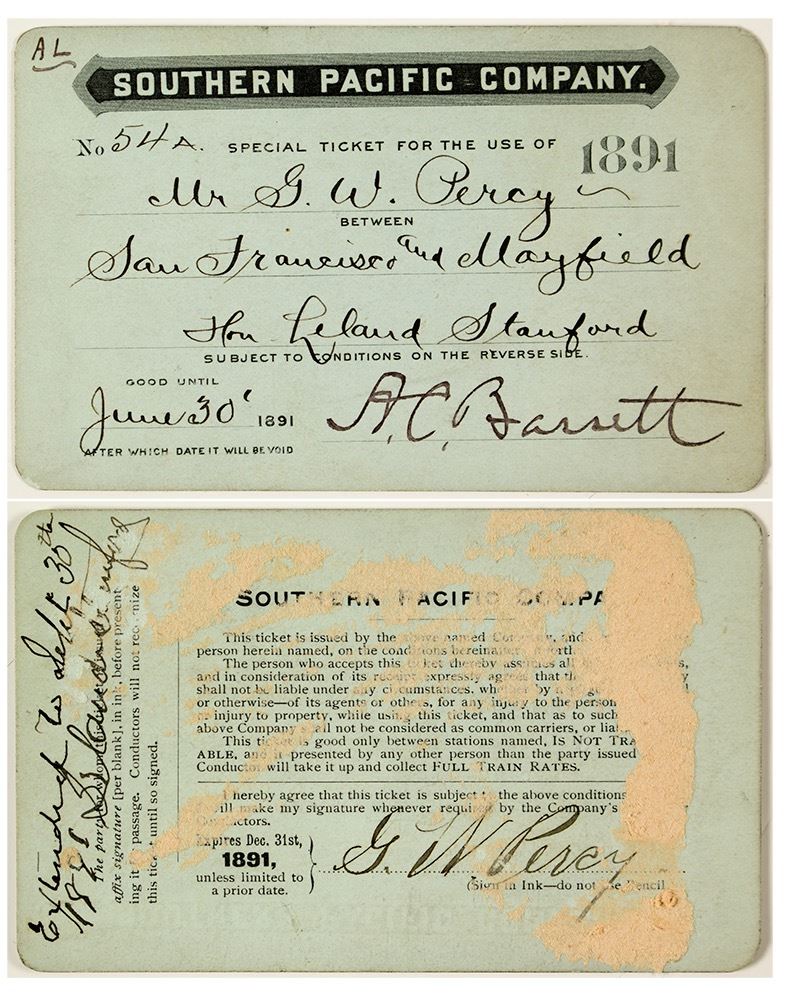 AL
SOUTHERN PACIFIC COMPANY.
No 54 A. SPECIAL TICKET FOR THE USE OF 1891
Mr G. W. Percy
BETWEEN
San Francisco and Mayfield
Hon Leland Stanford
SUBJECT TO CONDITIONS ON THE REVERSE SIDE.
GOOD UNTIL
June 30' 1891
A. C. Bassett
AFTER WHICH DATE IT WILL BE VOID
Extended to Sept 30th
affix signature [per blank], in ink, before present-
ing it passage. Conductors will not
this until so signed.
SOUTHERN PACIFIC COMPA
This ticket is issued by the above named Company, and
person herein named, on the
The person who accepts this thereby assumes all
and in consideration of its expressly agrees that th
shall not be liable under any circumstances, whether by
or otherwise—of its agents or others, for any injury to the person
or injury to property, while using this ticket, and that as to such
above Company not be considered as common carriers, or
This ticket is good only between stations named, IS NOT TRA
ABLE, and presented by any other person than the party issued
Conductor will take it up and collect FULL TRAIN RATES.
I hereby agree that this ticket is subject the above conditions
make my signature whenever required by the Company's
Expires Dec. 31st,
1891,
unless limited to
a prior date.
G. W Percy
(Sign in Ink—do not Use Pencil